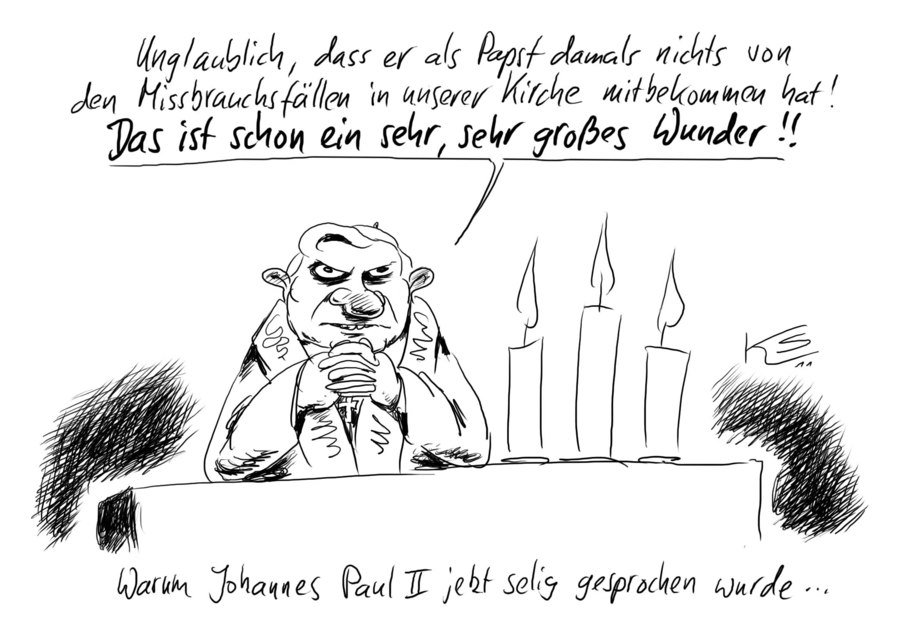 Unglaublich, dass er als Papst damals nichts von
den Missbrauchsfällen in unserer Kirche mitbekommen hat!
Das ist schon ein sehr, sehr großes Wunder!!
KS
11
Warum Johannes Paul II jetzt selig gesprochen wurde...